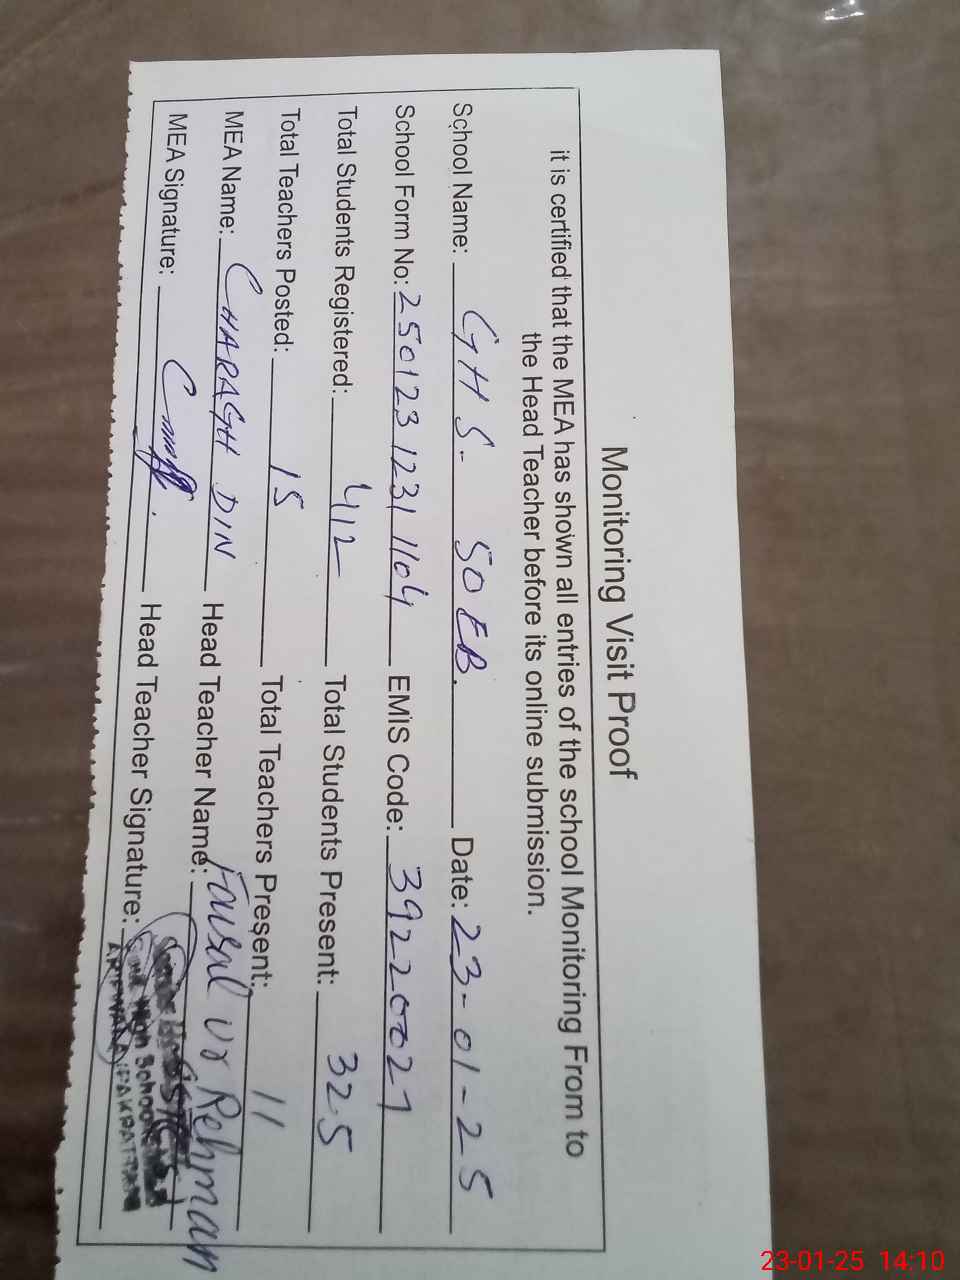 Monitoring Visit Proof
it is certified that the MEA has shown all entries of the school Monitoring From to
the Head Teacher before its online submission.
School Name: GHS- 50 EB. Date: 23-01-25
School Form No: 250123 1231 1104 EMIS Code: 39220021
Total Students Registered: 412 Total Students Present: 325
Total Teachers Posted: 15 Total Teachers Present: 11
MEA Name: CHARAGH DIN Head Teacher Name: ur Rehman
MEA Signature: Head Teacher Signature:
High School
ARIFWALA (PAKPATTAN)
23-01-25 14:10